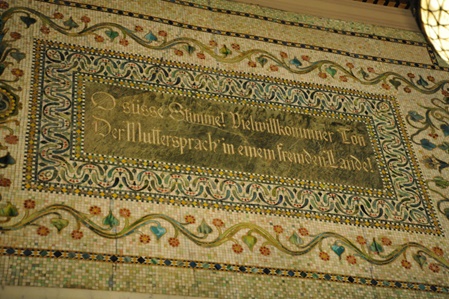 O süsse Stimme! Vielwillkommner Ton
Der Muttersprach' in einem fremden Lande!